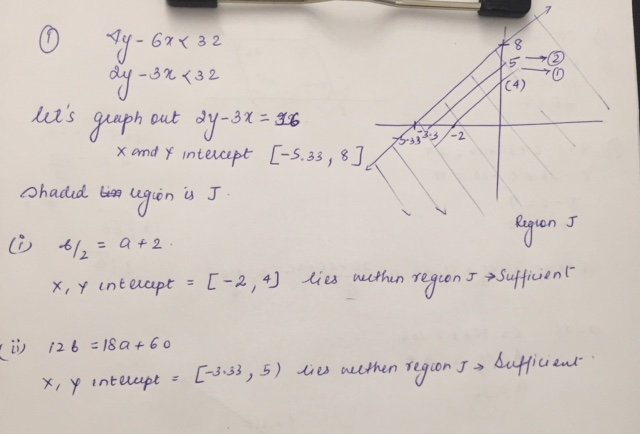 ① 4y - 6x < 32
2y - 3x < 32
let's graph out 2y - 3x = 16
x and y intercept [-5.33, 8]
shaded region is J.
8
5 → ②
→ ①
(4)
-5.33 -3.3 -2
Region J
(i) b/2 = a + 2.
x, y intercept = [-2, 4] lies within region J → Sufficient
(ii) 12b = 18a + 60
x, y intercept = [-3.33, 5) lies within region J → Sufficient.